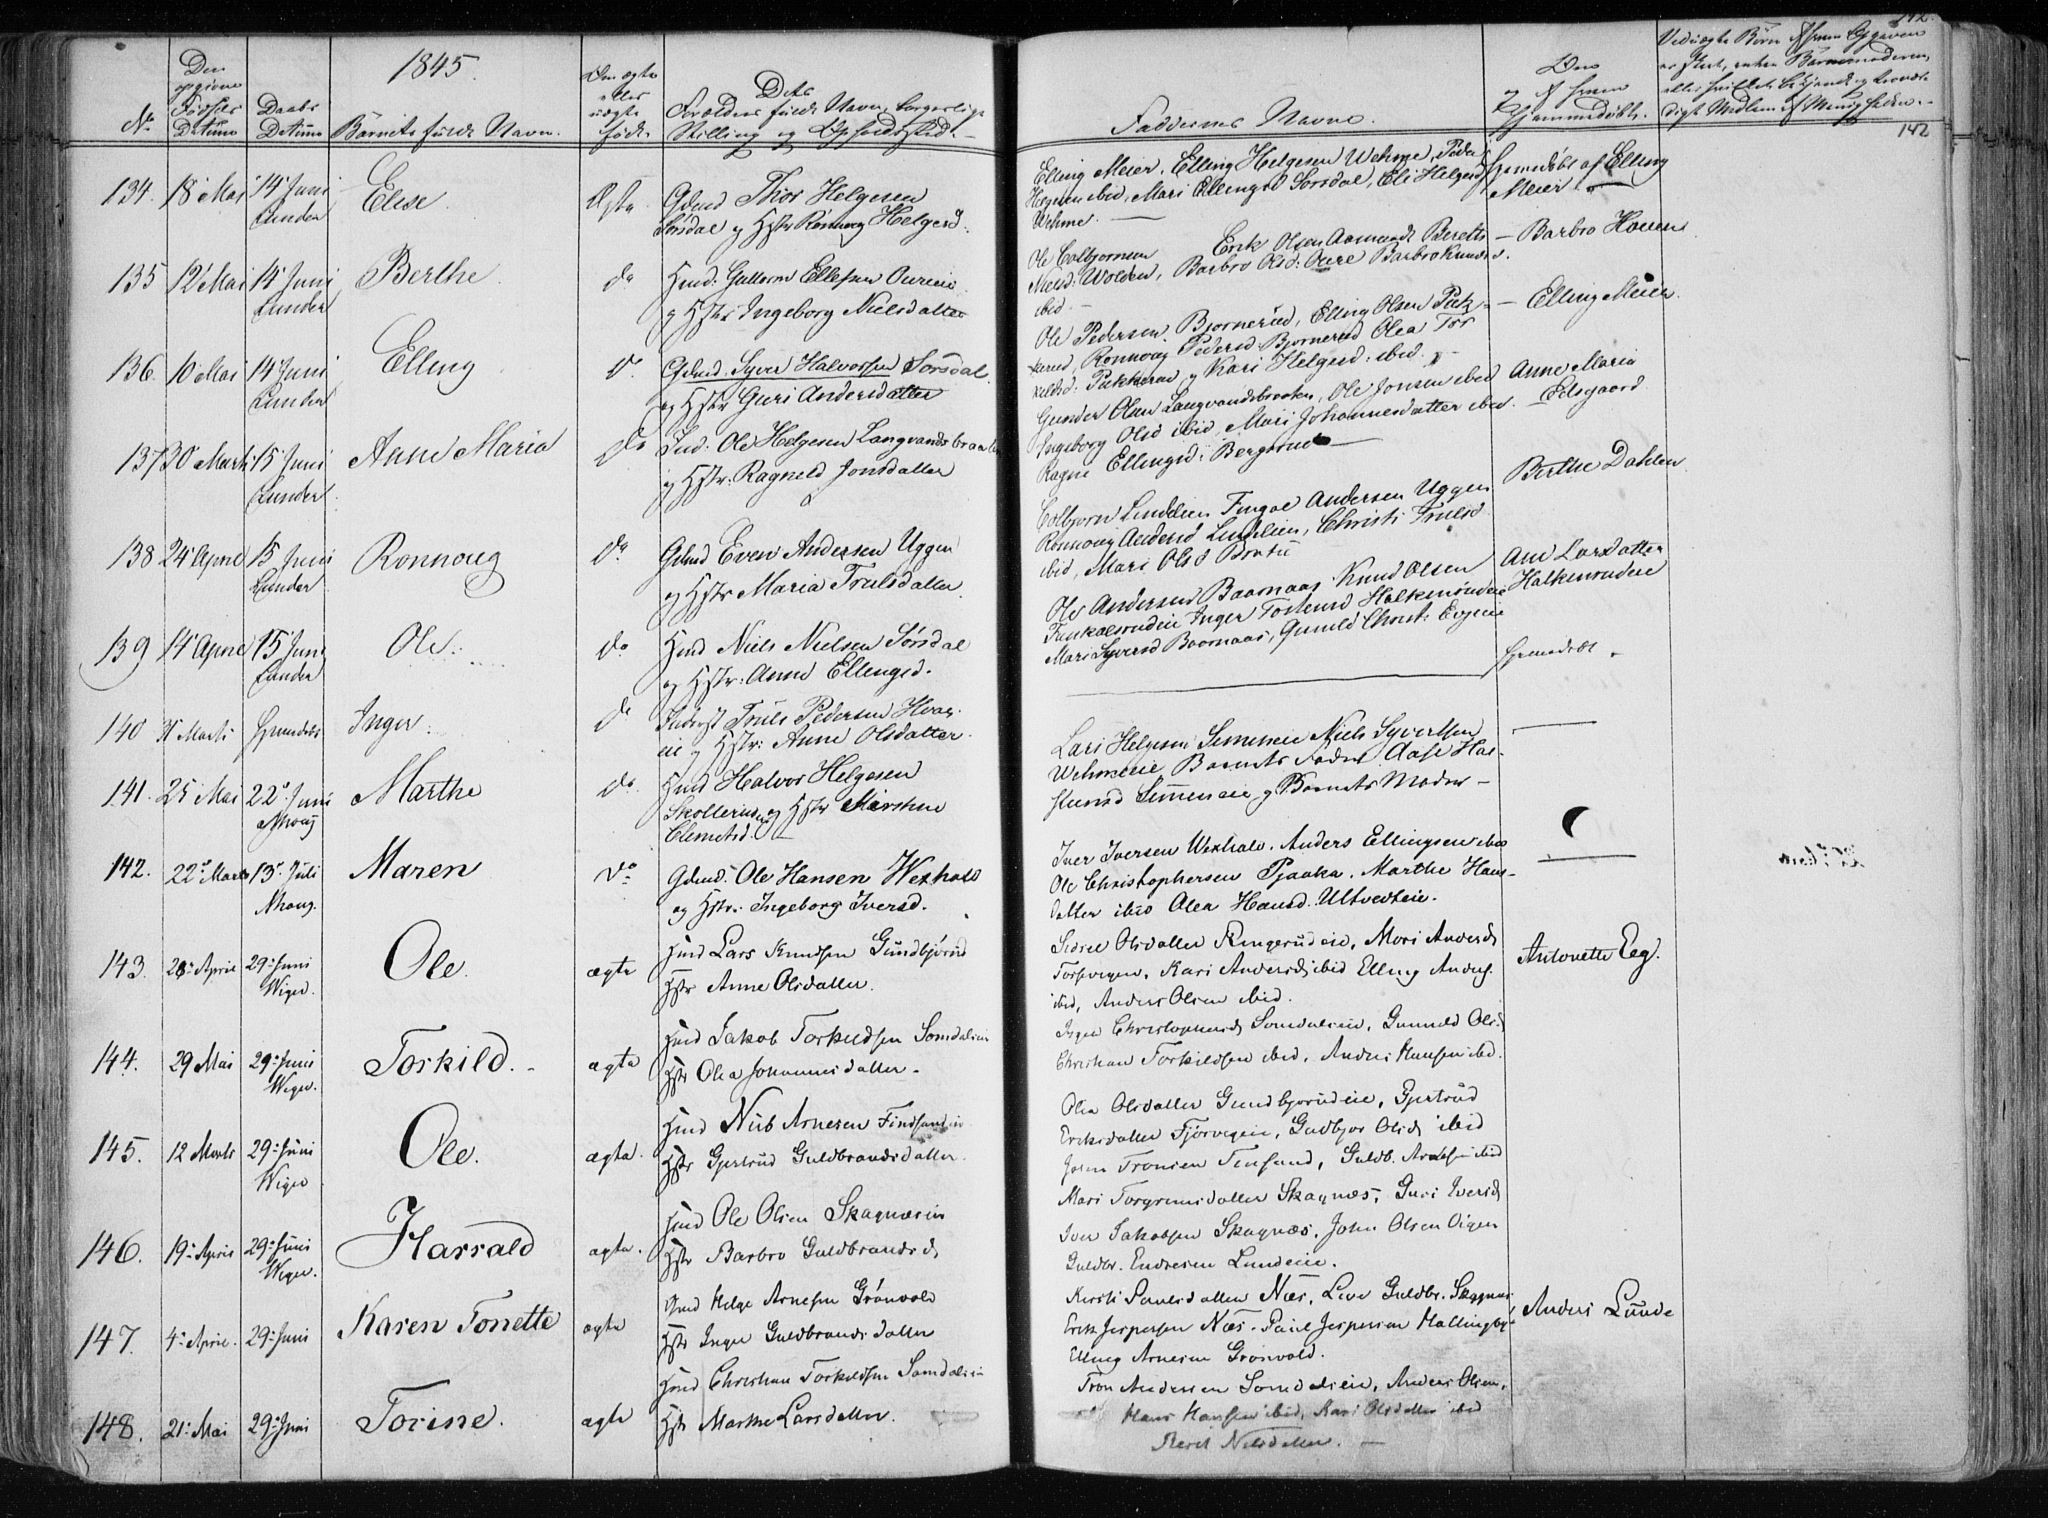 1845.
142.
142
No
Den opgivne Fødsels Datum
Daabs Datum
Barnets fulde Navn.
Om ægte eller uægte født.
Dets Forældres fulde Navn, borgerlige Stilling og Opholdssted.
Faddernes Navne.
134. 18 Mai 14 Juni Lunder
Elise
Ægte
Gdmd Thor Helgesen
Sørsdal og Hstr Rønnoug Helgesd.
Elling Meier, Elling Helgesen Wehme, Peder
Helgesen ibid, Mari Ellingsd Sørsdal, Eli Helgesd
Wehme.
Hjemmedøbt af Elling
Meier
135 12 Mai 14 Juni Lunder
Berthe
do
Hmd: Guttorm Ellefsen Oureie
og Hstr Ingeborg Nielsdatter
Ole Colbjornsen Erik Olsen Bereth
Nielsd: Wolden, Barbro Olsd: Oure Barbro Knudsd.
ibid
Barbro Houen
136. 10 Mai 14 Juni Lunder
Elling
do
Gdmd. Syver Halvorsen Sørsdal
og Hstr Guri Andersdatter
Ole Pedersen Bjornerud, Elling Olsen Puk-
kerud, Ronnoug Pedersd Bjornerud Olea Tor
kildsd: Pukkerud og Kari Helgesd. ibid.
Elling Meier.
137 30 Marts 15 Juni Lunder
Anne Maria
do
Ind: Ole Helgesen Langvandsbraaten
og Hstr: Ragnild Jonsdatter
Gunder Olsen Langvandsbraaten, Ole Jonsen ibid
Ingeborg Olsd ibid, Mari Johannesdatter ibid.
Ragne Ellingsd: Bergerud
Anne Maria
Eelsgaard
138 24 April 15 Juni Lunder
Ronnoug
do
Gdmd Even Andersen Uggen
og Hstr Maria Trulsdatter.
Colbjorn Lindelien Fingal Andersen Uggen
Ronnoug Andersd Lindelien, Christi Trulsd
ibid, Mari Olsd Bratli
Berthe Dahlen
139 14 April 15 Juni Lunder
Ole.
do
Hmd Niels Nielsen Sørsdal
og Hstr: Anne Ellingsd.
Ole Andersen Baarnaas Knud Olsen
Inger Tostensd Halkinrudeie
Mari Syversd Baarnaas, Gunild Christ: Evjeeie
Ane Larsdatter
Halkenrudeie
140 Marts Hjemdøbt
Inger.
do
Truls Pedersen
eie og Hstr: Anne Olsdatter.
Hjemdøbt
141. 25 Mai 22 Juni Nhoug
Marthe
do.
Hmd Halvor Helgesen
og Hstr
Clemetsd.
Lars Helgesen Simmeneie Niels Syvertsen
Wehmeie Barnets Fader Aase Hal-
Simmeneie og Barnets Moder
142. 22 Marts 13 Juli Nhoug.
Maren
do
Gdmd. Ole Hansen Wexhald
og Hstr: Ingeborg Iversd.
Iver Iversen Wexhale. Anders Ellingsen ibid
Ole Christophersen Pjaaka. Marthe Hans-
datter ibid Olea Hansd. Ultvedteie.
143. 28 April 29 Juni Wiger.
Ole.
ægte
Hmd Lars Knudsen Gundbjørud
Hstr Anne Olsdatter.
Sidsel Olsdatter Ringerudeie, Mari Andersd
Kari Andersd ibid Elling Anders.
ibid, Anders Olsen ibid.
Antonette Eeg.
144. 29 Mai 29 Juni Wiger.
Torkild.
ægte
Hmd Jakob Torkildsen Somdaleie
Hstr Olea Johannesdatter.
Inger Christophersd Somdaleie, Gunild Olsd
Christian Torkildsen ibid, Anders Hansen ibid.
145. 12 Marts 29 Juni Wiger
Ole.
ægte.
Hmd Niels Arnesen Findsandeie
Hstr Gjertrud Guldbrandsdatter.
Olea Olsdatter Gundbjorudeie, Gjertrud
Eriksdatter Fjorvegeie, Gudbjor Olsd ibid
Tronsen Finsand, Guldb. ibid
146. 19 April 29 Juni Wiger.
Harrald
ægte.
Hmd Ole Olsen Skagnæseie
Hstr Barbro Guldbrandsd
Mari Torgrimsdatter Skagnæs, Guri Iversd
Iver Jakobsen Skagnæs, John Olsen
Guldbr. Endresen Lundeie.
147. 4 April. 29 Juni
Karen Tonette
ægte
Gmd Helge Arnesen Grönvold
Hstr Inger Guldbrandsdatter
Kirsti Paulsdatter Næs, Live Guldbr. Skagnæs
Erik Jespersen Næs. Paul Jespersen Hallingby
Elling Arnesen Gronvold.
Anders Lunde
148. 21 Mai 29 Juni
Torine.
ægte
Hmd Christian Torkildsen Somdaleie
Hstr Marthe Larsdatter.
Tron Andersen Somdaleie, Anders Olsen,
Hans Hansen ibid, Kari Olsdatter ibid
Berit Nilsdatter.